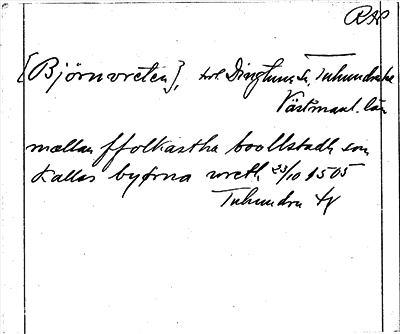 RAP
[Björnvreten], tvl Dingtuna sn, Tuhundra hd
Västmanl. län
mællan ffolkastha boollstadh som
kallas byörna vreth 23/10 1505
Tuhundra